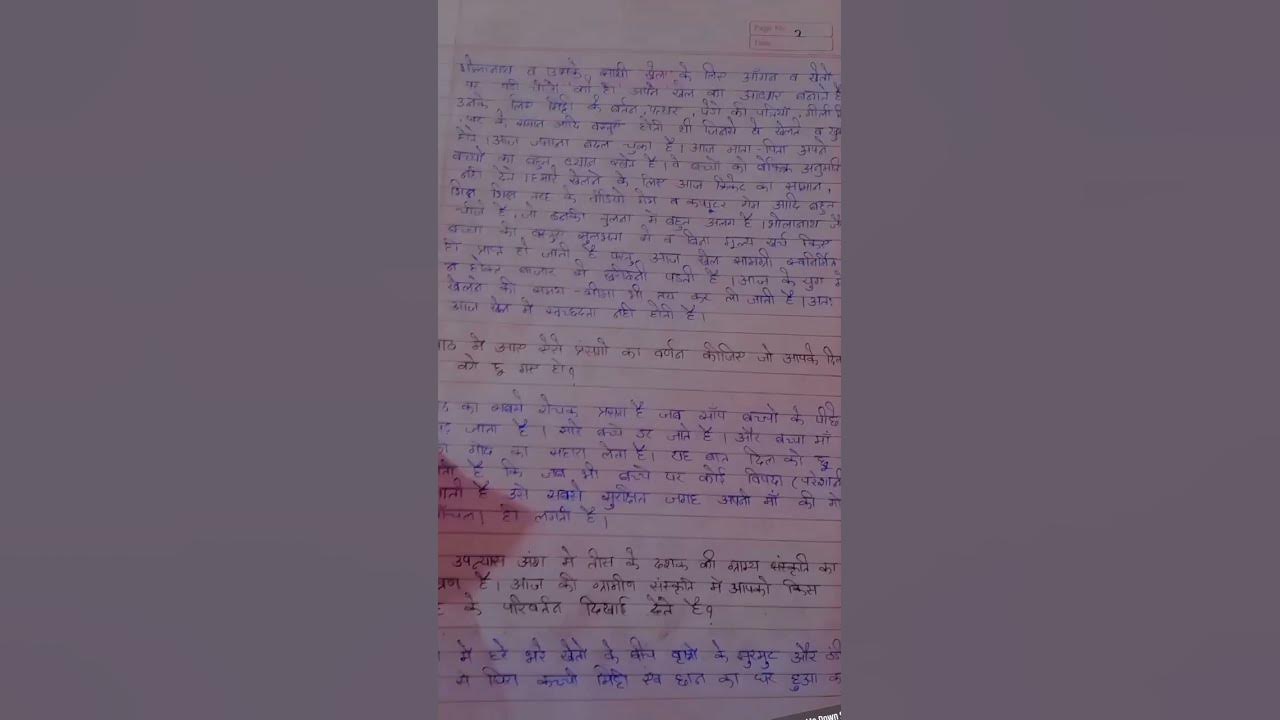 Page No. 2
Date
भोलानाथ व उसके साथी खेल के लिए आँगन व खेतो
पर पड़ी चीजो को ही अपने खेल का आधार बनाते है
उनके लिए मिट्टी के बर्तन, पत्थर, पेड़ो की पत्तियाँ, गीली
घर के समान आदि वस्तुएँ होती थी जिनसे वे खेलते व खुश
होते। आज जमाना बदल चुका है। आज माता-पिता अपने
बच्चों का बहुत ध्यान रखते है। वे बच्चो को बेफिक्र अनुमति
नही देते। हमारे खेलने के लिए आज क्रिकेट का समान,
भिन्न भिन्न तरह के वीडियो गेम व कंप्यूटर गेम आदि बहुत
चीजे है, जो इनकी तुलना मे बहुत अलग है। भोलानाथ जै
बच्चो की वस्तुएँ सुलभता से व बिना मूल्य खर्च किए
ही प्राप्त हो जाती है परन्तु आज खेल सामग्री स्वनिर्मित
न होकर बाजार से खरीदनी पड़ती है। आज के युग मे
खेलने की समय-सीमा भी तय कर ली जाती है। अतः
आज खेल मे स्वच्छंदता नही होती है।
पाठ मे आए ऐसे प्रसंगो का वर्णन कीजिए जो आपके दिल
को छू गए हो?
का सबसे रोचक प्रसंग है जब साँप बच्चो के पीछे
जाता है। सारे बच्चे डर जाते है। और बच्चा माँ
गोद का सहारा लेता है। यह बात दिल को छू
है कि जब भी बच्चे पर कोई विपदा (परेशानी
है उसे सबसे सुरक्षित जगह अपनी माँ की गो
ही लगती है।
उपन्यास अंश मे तीस के दशक की ग्राम्य संस्कृति का
है। आज की ग्रामीण संस्कृति मे आपको किस
के परिवर्तन दिखाई देते है?
मे हरे भरे खेतो के बीच वृक्षो के झुरमुट और ठं
मे कच्ची मिट्टी एंव छान का घर हुआ क